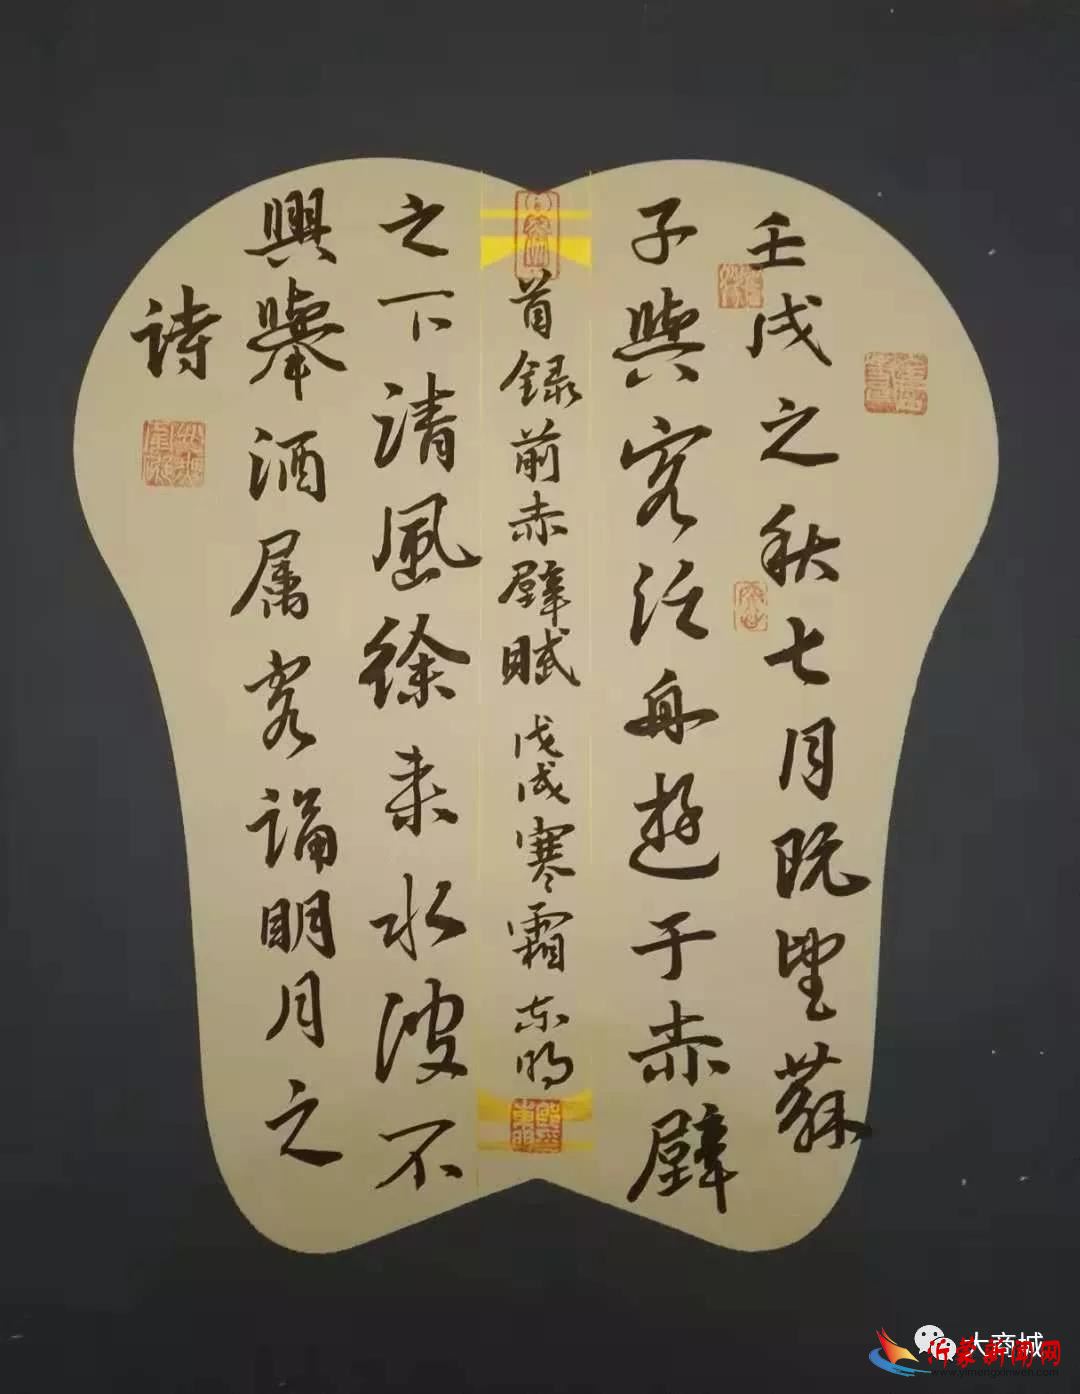 壬戌之秋七月既望蘇
子與客泛舟遊于赤壁
之下清風徐来水波不
興舉酒属客誦明月之
詩
首録前赤壁賦戊戌寒霜东明
大商城
沂蒙新闻网
www.yimengxinwen.com